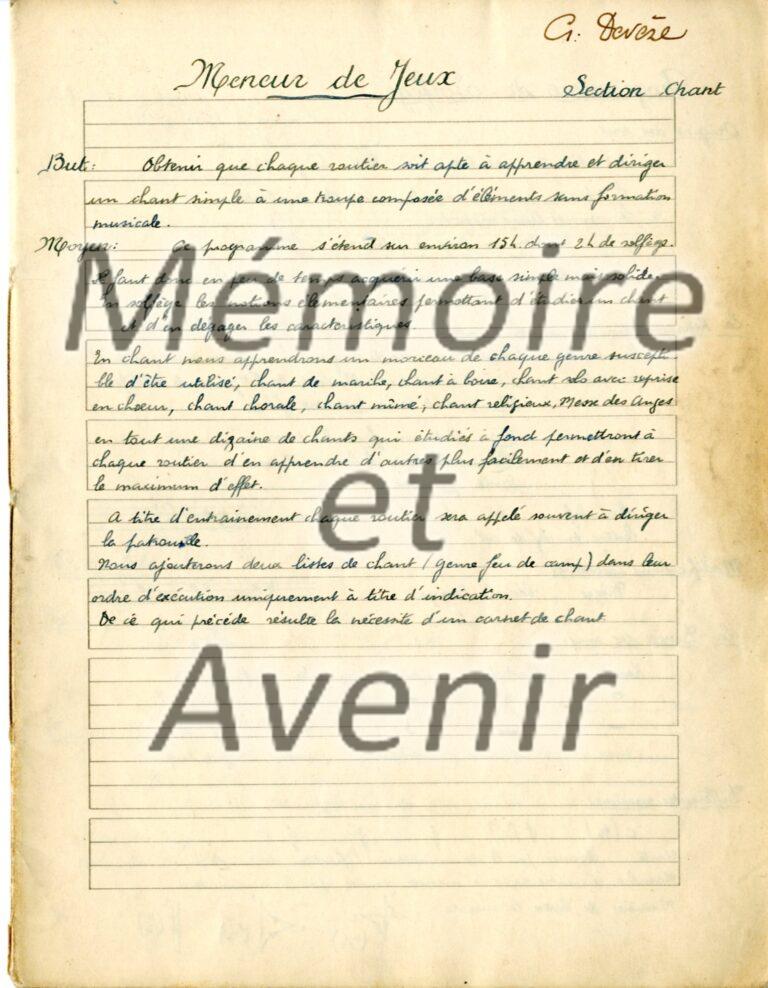 G. Devèze
Meneur de Jeux
Section Chant
But: Obtenir que chaque routier soit apte à apprendre et diriger
un chant simple à une troupe composée d'éléments sans formation
musicale.
Moyen: Ce programme s'étend sur environ 15h. dont 2h de solfège.
Il faut donc en peu de temps acquérir une base simple mais solide.
En solfège les notions élémentaires permettant d'étudier un chant
et d'en dégager les caractéristiques.
En chant nous apprendrons un morceau de chaque genre suscepti
ble d'être utilisé, chant de marche, chant à boire, chant solo avec reprise
en chœur, chant chorale, chant mimé, chant religieux, Messe des Anges
en tout une dizaine de chants qui étudiés à fond permettront à
chaque routier d'en apprendre d'autres plus facilement et d'en tirer
le maximum d'effet.
A titre d'entrainement chaque routier sera appelé souvent à diriger
la patrouille.
Nous ajouterons deux listes de chant (genre feu de camp) dans leur
ordre d'exécution uniquement à titre d'indication.
De ce qui précéde résulte la nécessité d'un carnet de chant
Mémoire
et
Avenir